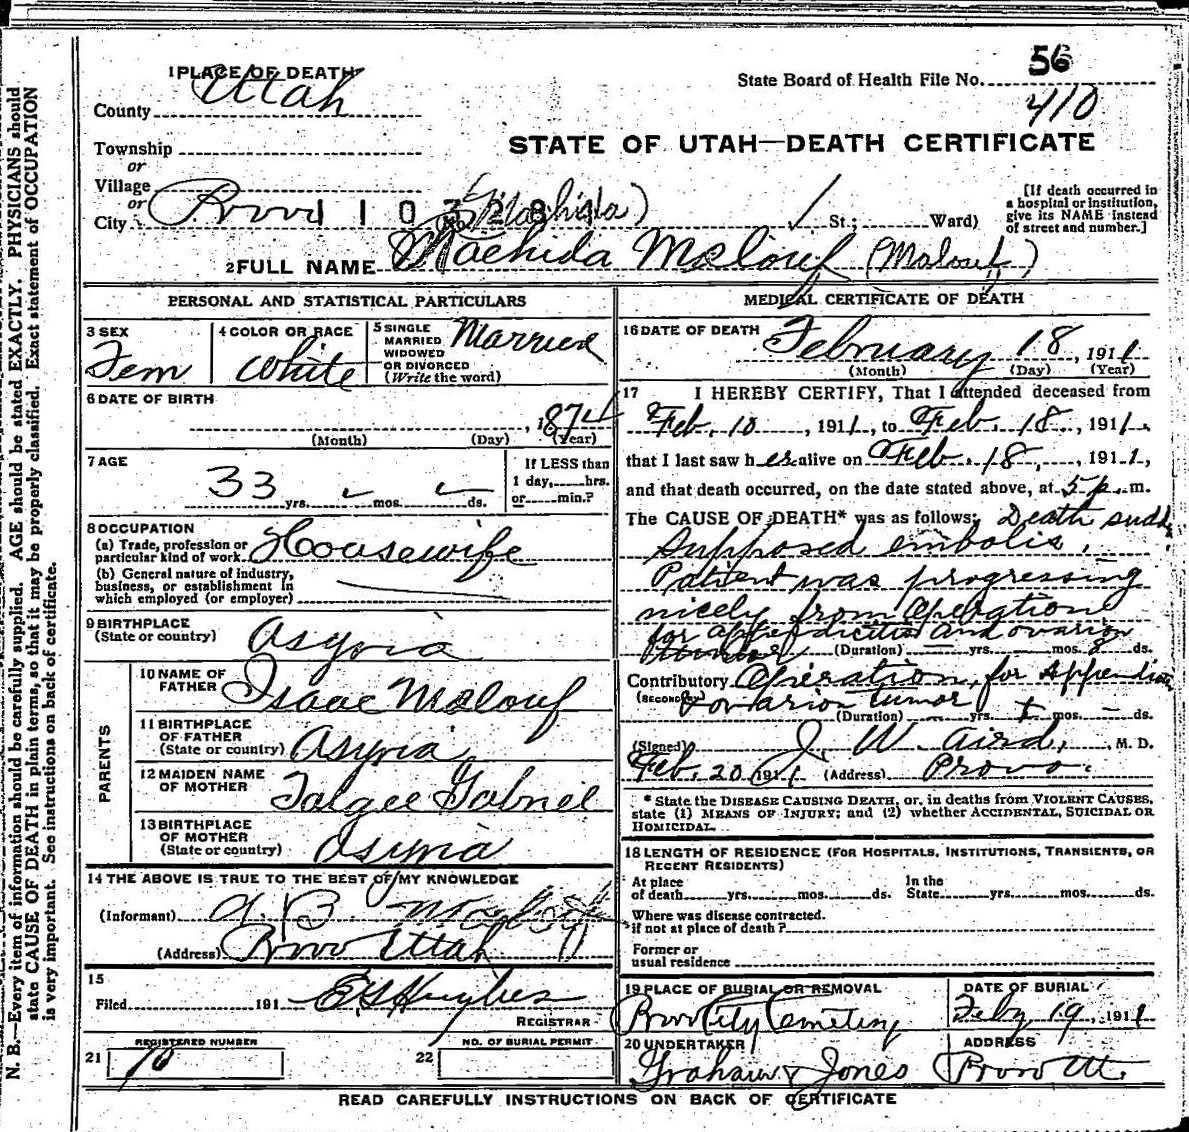 1 PLACE OF DEATH
County Utah
State Board of Health File No. 56
410
STATE OF UTAH—DEATH CERTIFICATE
Township
or
Village
or
City Provo
1103284
St.; Ward)
[If death occurred in
a hospital or institution,
give its NAME instead
of street and number.]
2 FULL NAME Rachida Malouf (Malouf)
PERSONAL AND STATISTICAL PARTICULARS
3 SEX
Fem
4 COLOR OR RACE
White
5 SINGLE
MARRIED
WIDOWED
OR DIVORCED
(Write the word)
Married
6 DATE OF BIRTH
, 1874
(Month) (Day) (Year)
7 AGE
33 yrs. mos. ds.
If LESS than
1 day, hrs.
or min.?
8 OCCUPATION
(a) Trade, profession or
particular kind of work Housewife
(b) General nature of industry,
business, or establishment in
which employed (or employer)
9 BIRTHPLACE
(State or country) Asyria
PARENTS
10 NAME OF
FATHER Isaac Malouf
11 BIRTHPLACE
OF FATHER
(State or country) Asyria
12 MAIDEN NAME
OF MOTHER Gabriel
13 BIRTHPLACE
OF MOTHER
(State or country) Asyria
14 THE ABOVE IS TRUE TO THE BEST OF MY KNOWLEDGE
(Informant)
(Address) Provo Utah
15
Filed 191 Hughes
REGISTRAR
21 REGISTERED NUMBER
22 NO. OF BURIAL PERMIT
MEDICAL CERTIFICATE OF DEATH
16 DATE OF DEATH
February 18, 1911
(Month) (Day) (Year)
17 I HEREBY CERTIFY, That I attended deceased from
Feb. 10, 1911, to Feb. 18, 1911,
that I last saw her alive on Feb. 18, 1911,
and that death occurred, on the date stated above, at 5 p. m.
The CAUSE OF DEATH* was as follows: Death sudd
Supposed embolis.
Patient was progressing
nicely from operation
for appendicitis and ovarion
(Duration) yrs. mos. 8 ds.
Contributory Operation for Appendicitis
(SECONDARY) ovarion tumor
(Duration) yrs. mos. ds.
(Signed) J. W. Aird, M. D.
Feb. 20 1911 (Address) Provo.
* State the DISEASE CAUSING DEATH, or, in deaths from VIOLENT CAUSES,
state (1) MEANS OF INJURY; and (2) whether ACCIDENTAL, SUICIDAL OR
HOMICIDAL.
18 LENGTH OF RESIDENCE (FOR HOSPITALS, INSTITUTIONS, TRANSIENTS, OR
RECENT RESIDENTS)
At place
of death yrs. mos. ds.
In the
State yrs. mos. ds.
Where was disease contracted.
if not at place of death?
Former or
usual residence
19 PLACE OF BURIAL OR REMOVAL
Provo City Cemetery
DATE OF BURIAL
Feby 19, 1911
20 UNDERTAKER
Graham & Jones
ADDRESS
Provo Ut.
READ CAREFULLY INSTRUCTIONS ON BACK OF CERTIFICATE
N. B.—Every item of information should be carefully supplied. AGE should be stated EXACTLY. PHYSICIANS should
state CAUSE OF DEATH in plain terms, so that it may be properly classified. Exact statement of OCCUPATION
is very important. See instructions on back of certificate.